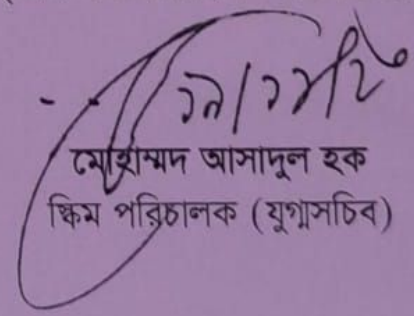 মোহাম্মদ আসাদুল হক
স্কিম পরিচালক (যুগ্মসচিব)